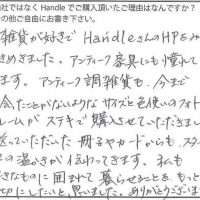 社ではなく Handle でご購入頂いたご理由はなんですか？
の他ご自由にお書き下さい。
雑貨が好きで HandleさんのHPをみ
きめきました。アンティーク家具にも憧れて
ます。アンティーク調雑貨も、今まで
会ったことがないような サイズと色使いのフォト
レームが ステキで 購入させていただきまし
送っていただいた 冊子やカードからも、スタ
の温かさが 伝わってきます。私も
きなものに 囲まれて 暮らせることを、もっ
切にしたいと、思いました。ありがとうございま